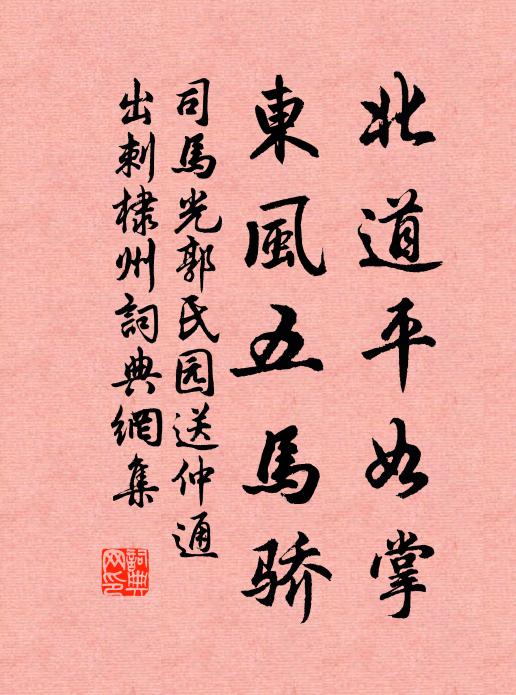 北道平如掌
東風五馬骄
司馬光郭氏园送仲通
出刺棣州詞典網集
詞典網印